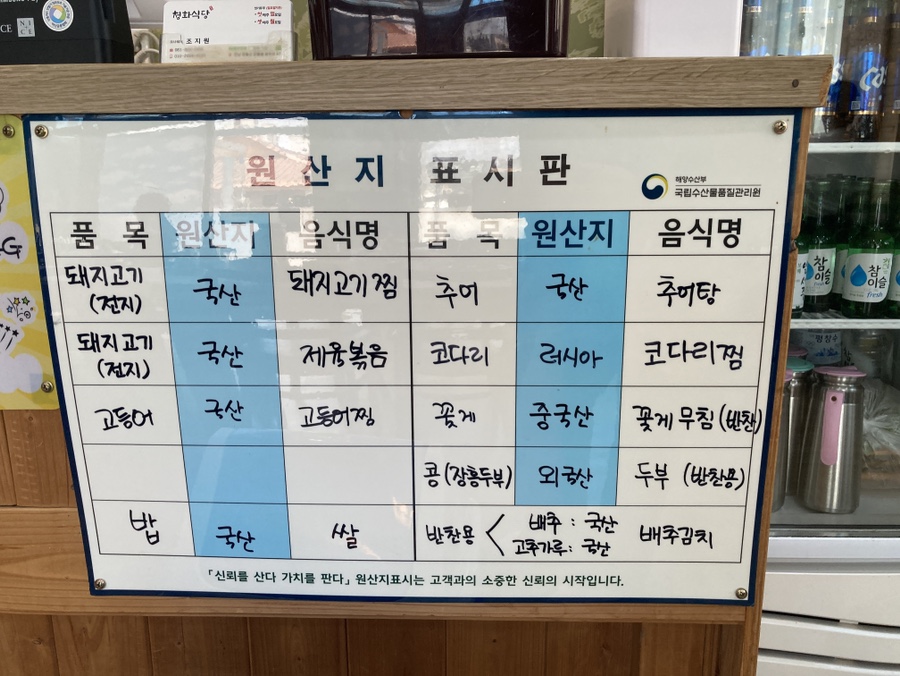 청화식당
조지원
원산지 표시판
해양수산부
국립수산물품질관리원
품 목 원산지 음식명 품 목 원산지 음식명
돼지고기 (전지) 국산 돼지고기 찜 추어 국산 추어탕
돼지고기 (전지) 국산 제육볶음 코다리 러시아 코다리찜
고등어 국산 고등어찜 꽃게 중국산 꽃게 무침 (반찬)
콩 (장흥두부) 외국산 두부 (반찬용)
밥 국산 쌀 반찬용 배추 : 국산 배추김치
고추가루 : 국산
「신뢰를 산다 가치를 판다」 원산지표시는 고객과의 소중한 신뢰의 시작입니다.
참이슬
fresh
참이슬
fresh